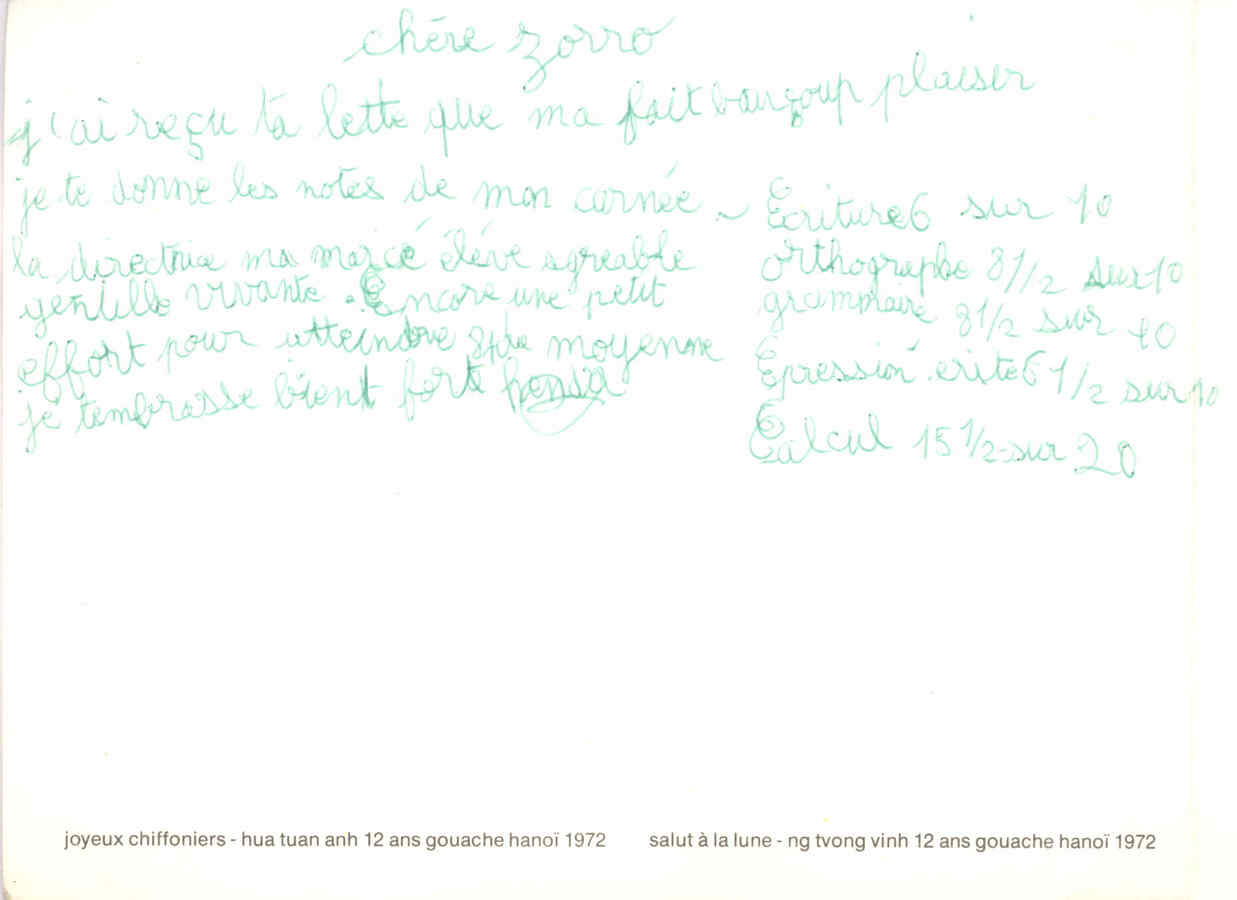 chére zorro
j'ai reçu ta lette que ma fait bauçoup plaiser
je te donne les notes de mon carnée -
la directrice ma marcé éléve agreable
gentille vivante. Encore une petit
effort pour atteindre la moyenne
je tembrasse bient fort
Ecriture 6 sur 10
orthographe 8 1/2 sur 10
grammaire 8 1/2 sur 10
Epression écrite 6 1/2 sur 10
Calcul 15 1/2 sur 20
joyeux chiffoniers - hua tuan anh 12 ans gouache hanoï 1972
salut à la lune - ng tvong vinh 12 ans gouache hanoï 1972